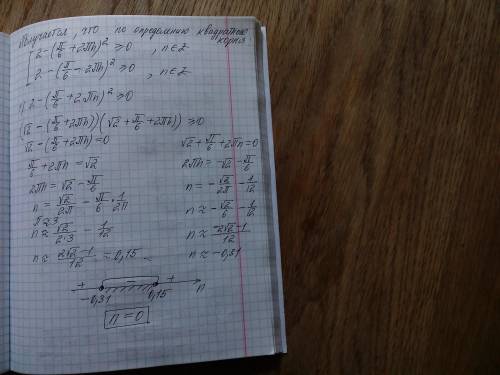 Получается, что по определению квадратного корня
[ 2-(π/6+2πn)² ≥0 , n∈Z
2-(π/6-2πn)² ≥0 , n∈Z
1) 2-(π/6+2πn)² ≥0
(√2-(π/6+2πn))(√2+π/6+2πn)) ≥0
√2-(π/6+2πn)=0
π/6+2πn=√2
2πn=√2-π/6
n=√2/2π-π/6·1/2π
π≈3
n≈√2/2·3-1/12
n≈2√2-1/12≈0,15
√2+π/6+2πn=0
2πn=-√2-π/6
n=-√2/2π-1/12
n≈-√2/6-1/12
n≈-2√2-1/12
n≈-0,31
+ - +
-0,31 0,15 n
n=0